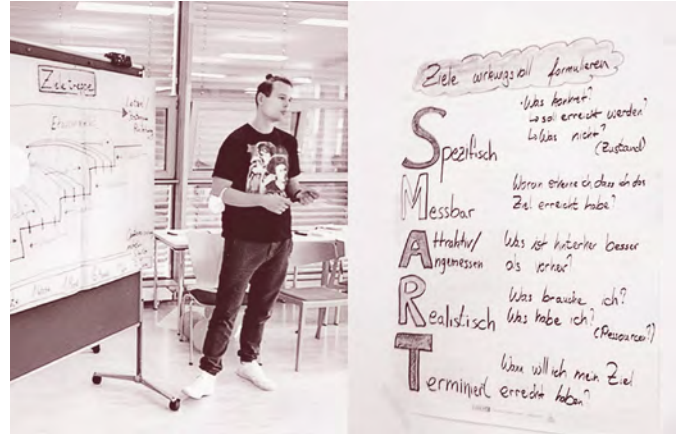 Zieltreppe
Ziele wirkungsvoll formulieren
Spezifisch
• Was konkret?
↳ soll erreicht werden?
↳ Was nicht?
(Zustand)
Messbar
Woran erkenne ich, dass ich das
Ziel erreicht habe?
Attraktiv/
Angemessen
Was ist hinterher besser
als vorher?
Realistisch
Was brauche ich?
Was habe ich?
(Ressourcen?)
Terminiert
Wann will ich mein Ziel
erreicht haben?